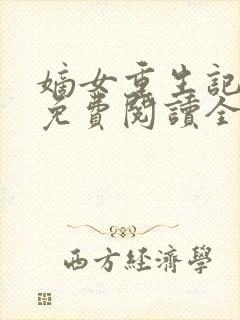 嫡女重生記
免費閱讀全
西方經濟學